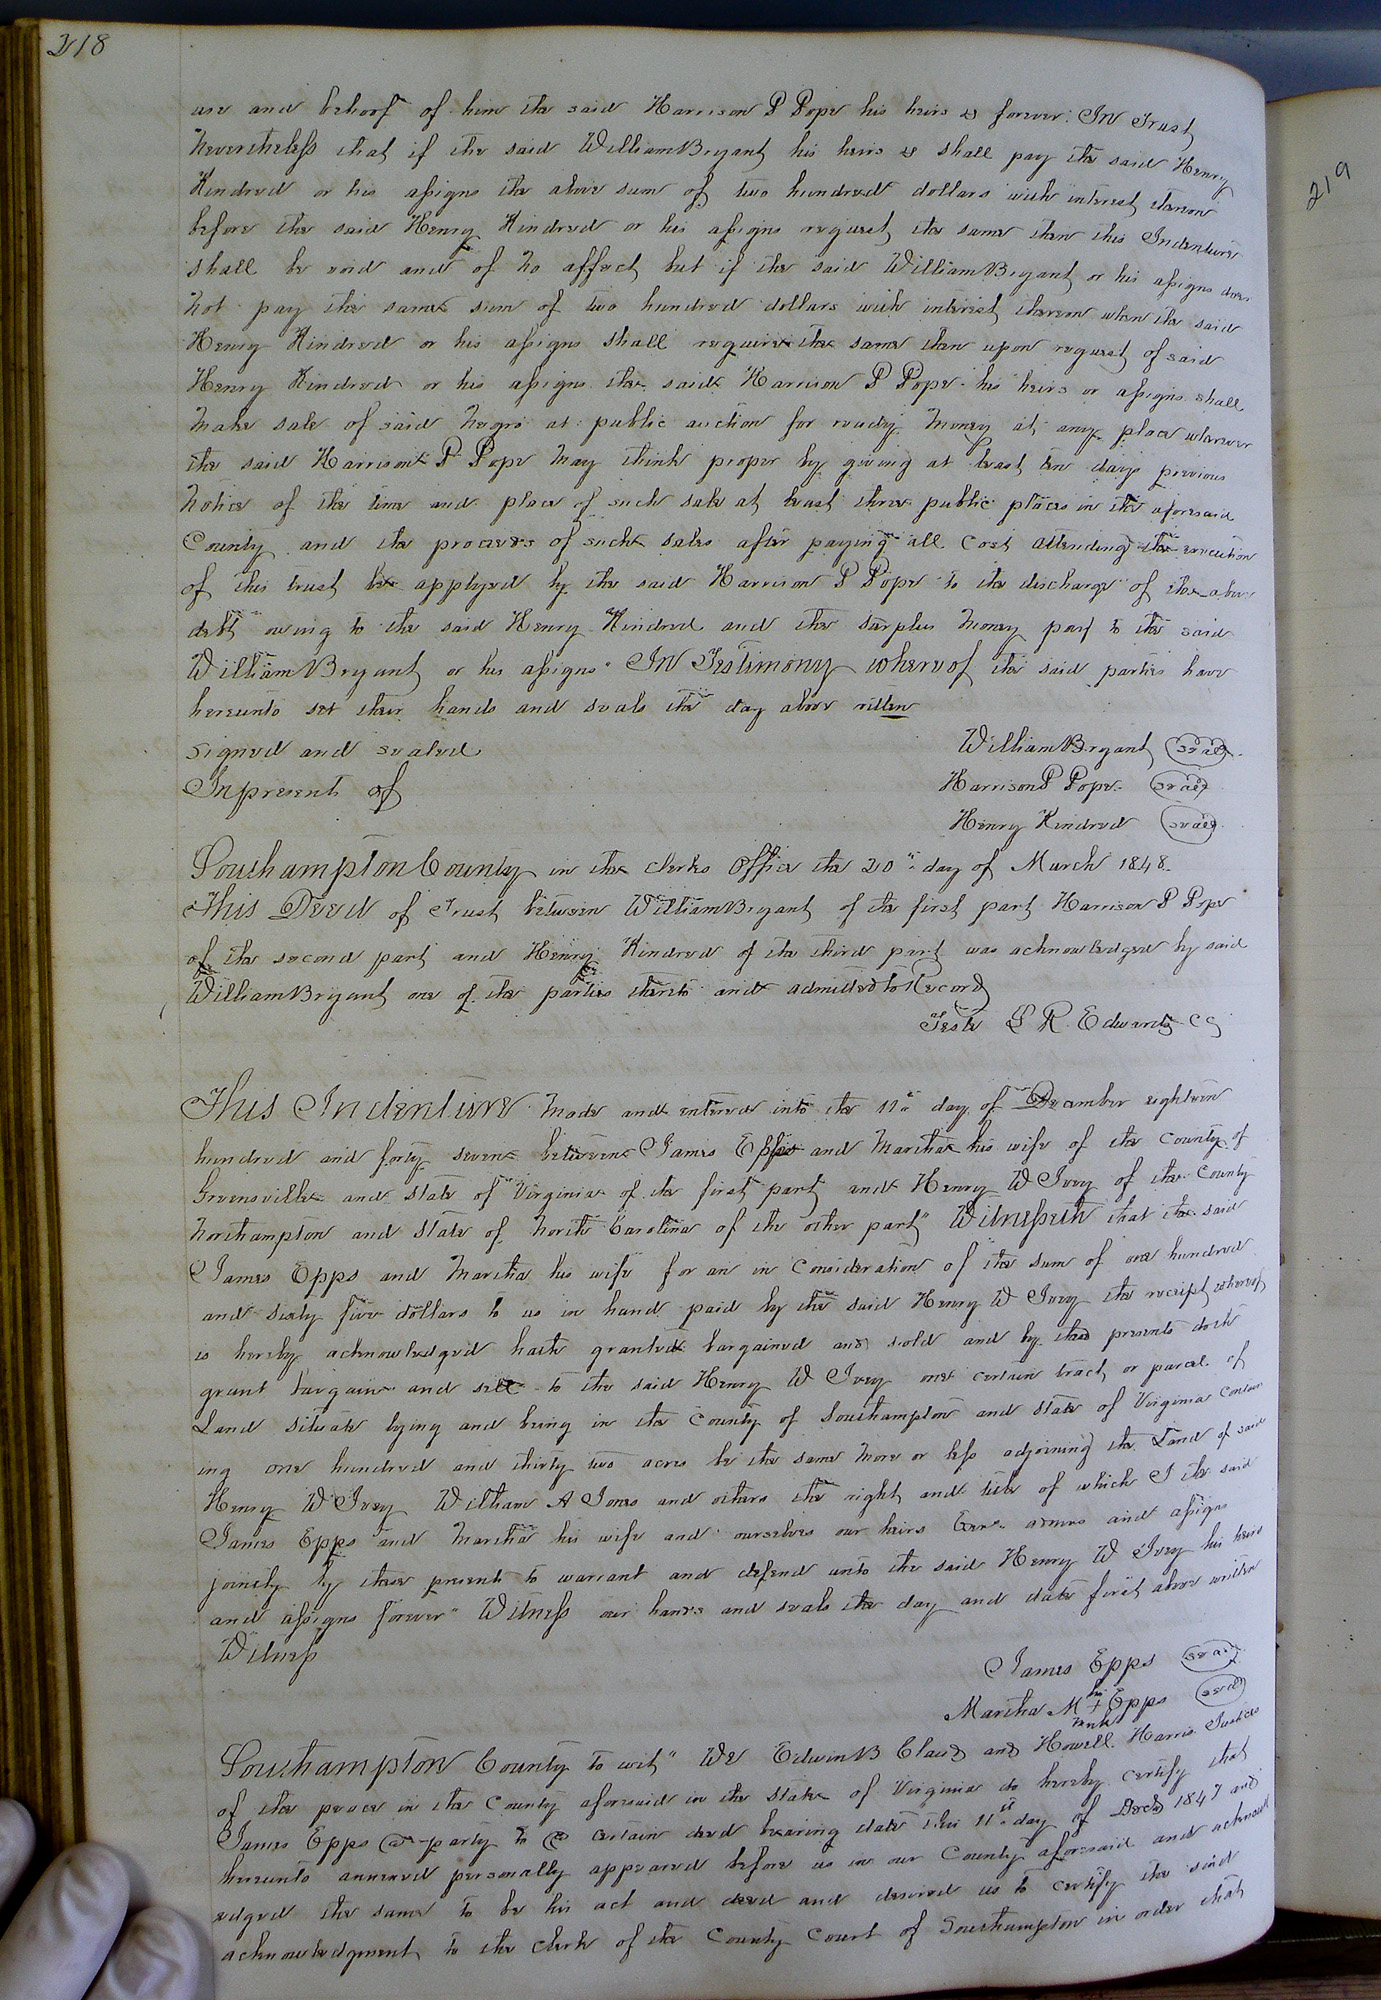 218
use and behoof of him the said Harrison P Pope his heirs &c forever. In Trust
Nevertheless that if the said William Bryant his heirs &c shall pay the said Henry
Kindred or his assigns the above sum of two hundred dollars with interest thereon
before the said Henry Kindred or his assigns request the same then this Indenture
shall be void and of no affect but if the said William Bryant or his assigns does
not pay the same sum of two hundred dollars with interest thereon when the said
Henry Kindred or his assigns shall require the same then upon request of said
Henry Kindred or his assigns the said Harrison P Pope his heirs or assigns shall
make sale of said negro at public auction for ready money at any place wherever
the said Harrison P Pope may think proper by giving at least ten days previous
notice of the time and place of such sale at least three public places in the aforesaid
County and the proceeds of such sales after paying all cost attending the execution
of this trust be applyed by the said Harrison P Pope to the discharge of the above
debt owing to the said Henry Kindred and the surplus money pay to the said
William Bryant or his assigns" In Testimony whereof the said parties have
hereunto set their hands and seals the day above ritten
Signed and sealed
William Bryant (seal)
In present of
Harrison P Pope (seal)
Henry Kindred (seal)
Southampton County in the clerks office the 20th day of March 1848.
This Deed of Trust between William Bryant of the first part Harrison P Pope
of the second part and Henry Kindred of the third part was acknowledged by said
William Bryant one of the parties thereto and admitted to Record
Teste L R Edwards CC
This Indenture made and entered into the 11th day of December eighteen
hundred and forty seven between James Epps and Martha his wife of the County of
Greensville and State of Virginia of the first part and Henry W Ivey of the County
Northampton and State of North Carolina of the other part" Witnesseth that the said
James Epps and Martha his wife for an in Consideration of the sum of one hundred
and sixty five dollars to us in hand paid by the said Henry W Ivey the receipt whereof
is hereby acknowledged hath granted bargained and sold and by these presents doth
grant bargain and sell to the said Henry W Ivey one certain tract or parcel of
Land situate lying and being in the County of Southampton and State of Virginia contain
ing one hundred and thirty two acres be the same more or less adjoining the Land of said
Henry W Ivey William A Jones and others the right and title of which I the said
James Epps and Martha his wife and ourselves our heirs Exrs admrs and assigns
jointly by these presents to warrant and defend unto the said Henry W Ivey his heirs
and assigns forever" Witness our hands and seals the day and date first above written
Witness
James Epps (seal)
Martha M her + mark Epps (seal)
Southampton County to wit" We Edwin B Claud and Howell Harris Justices
of the peace in the County aforesaid in the State of Virginia do hereby certify that
James Epps a party to a certain deed bearing date this 11th day of Decr 1847 and
hereunto annexed personally appeared before us in our County aforesaid and acknowl
edged the same to be his act and deed and desired us to certify the said
acknowledgment to the clerk of the County Court of Southampton in order that
219